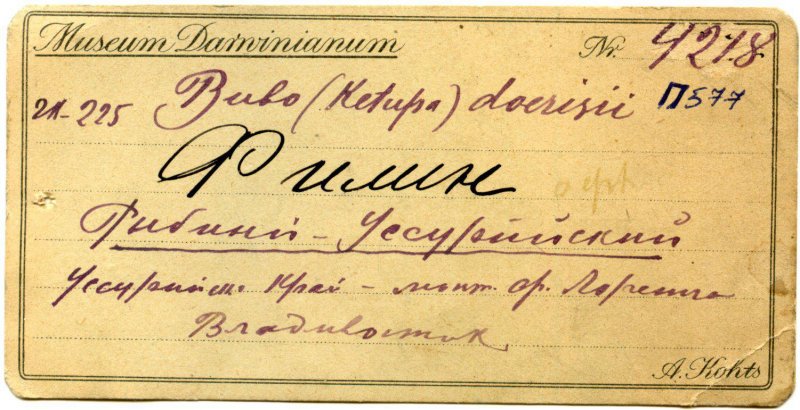 Museum Darwinianum Nr. 4218
Bubo (Ketupa) doerisii П577
гл-225
Филин
Рыбный - Уссурийский
Уссурийск. Край - монт. ф. Лоренца
Владивосток
A. Kohts